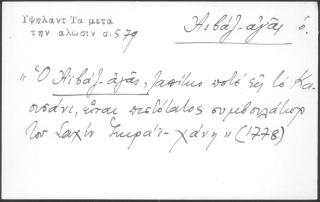 Ὑψηλαντ Τα μετα
την αλωσιν σ. 579
Ἀϊβάζ-ἀγᾶς ὁ.
"Ὁ Ἀϊβάζ-ἀγᾶς, ζαπίτης ποτὲ εἰς τὸ Κα
ουσάνι, εἶναι πιστότατος συμβουλάτωρ
τοῦ Σαχὶν Γκιράϊ-χάνη" (1778)